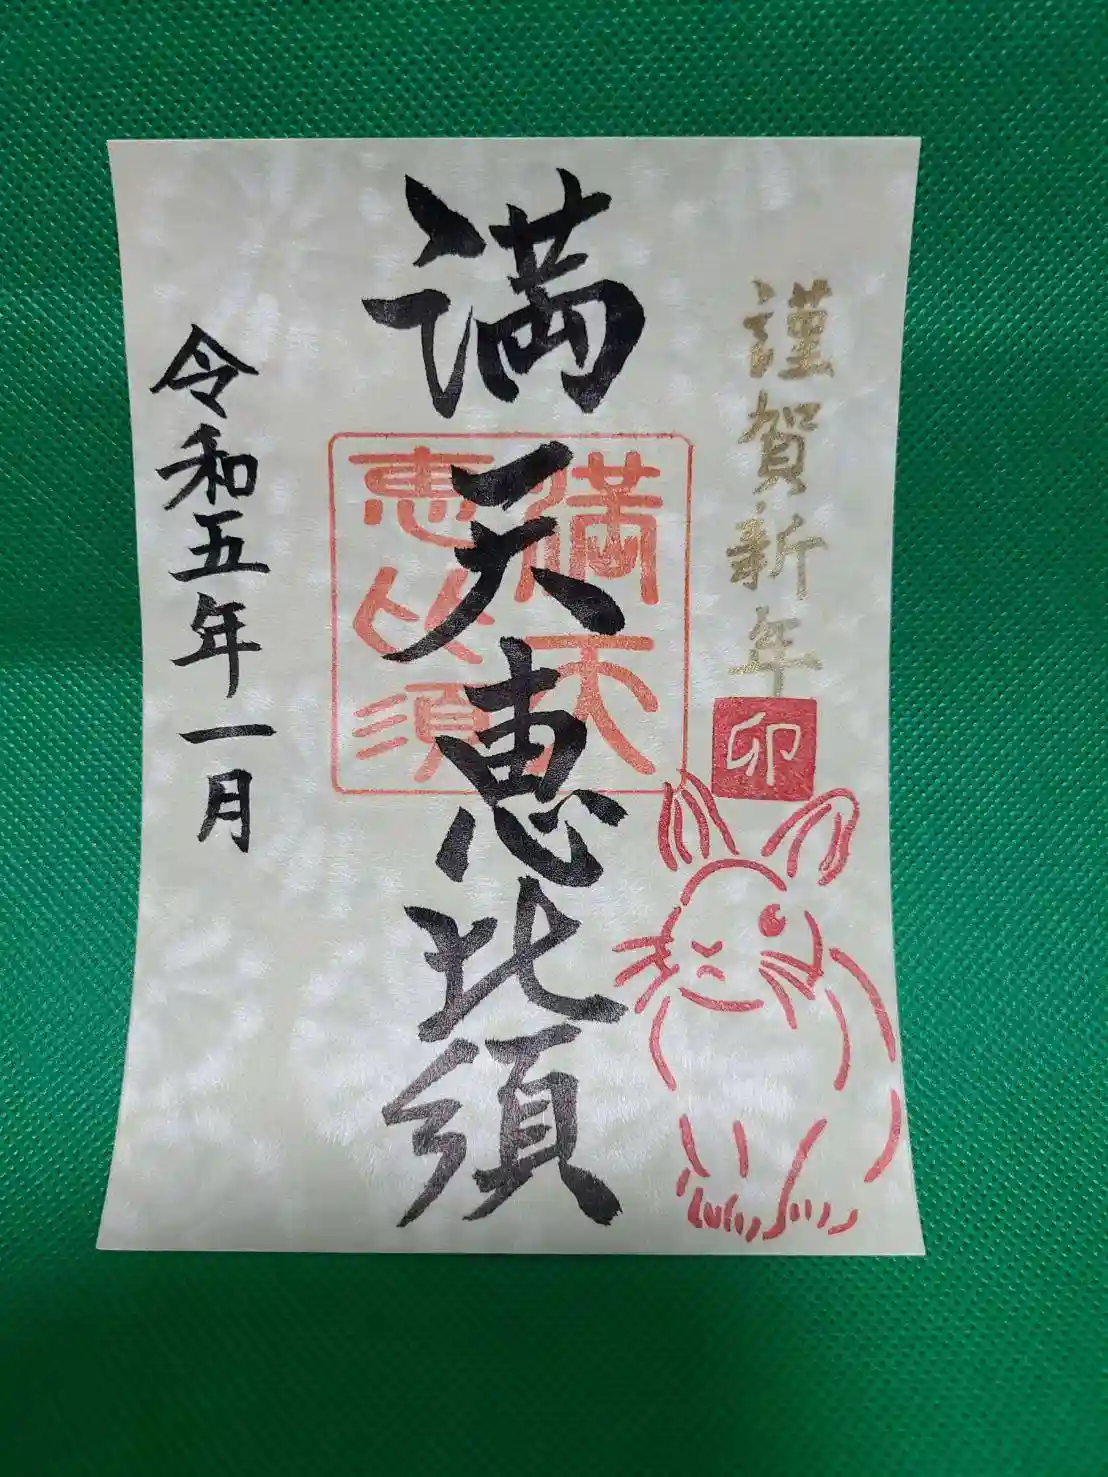 謹賀新年
卯
満天恵比須
満天
恵比須
令和五年一月